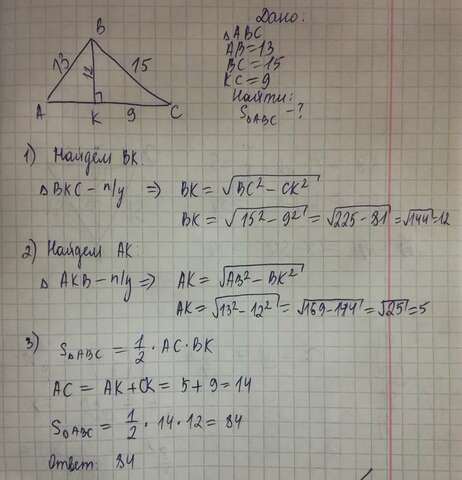 Дано:
△ABC
AB=13
BC=15
KC=9
Найти:
S△ABC -?
B
13
12
15
A
K
9
C
1) Найдём BK.
△BKC - п/у => BK = √BC² - CK²
BK = √15² - 9² = √225 - 81 = √144 = 12
2) Найдем AK
△AKB - п/у => AK = √AB² - BK²
AK = √13² - 12² = √169 - 144 = √25 = 5
3) S△ABC = 1/2 · AC · BK
AC = AK + CK = 5 + 9 = 14
S△ABC = 1/2 · 14 · 12 = 84
Ответ: 84